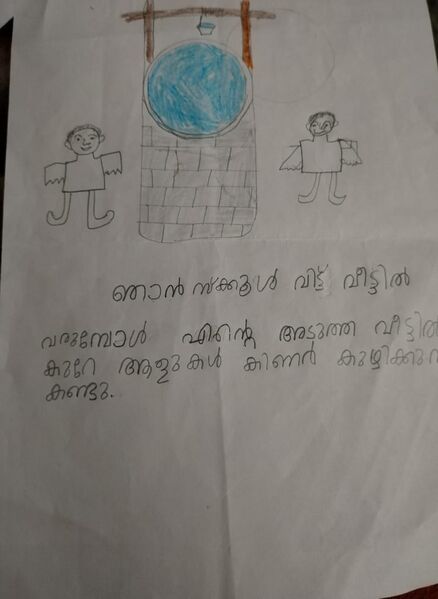 ഞാൻ സ്ക്കൂൾ വിട്ട് വീട്ടിൽ
വരുമ്പോൾ എന്റെ അടുത്ത വീട്ടിൽ
കുറേ ആളുകൾ കിണർ കുഴിക്കുന
കണ്ടു.